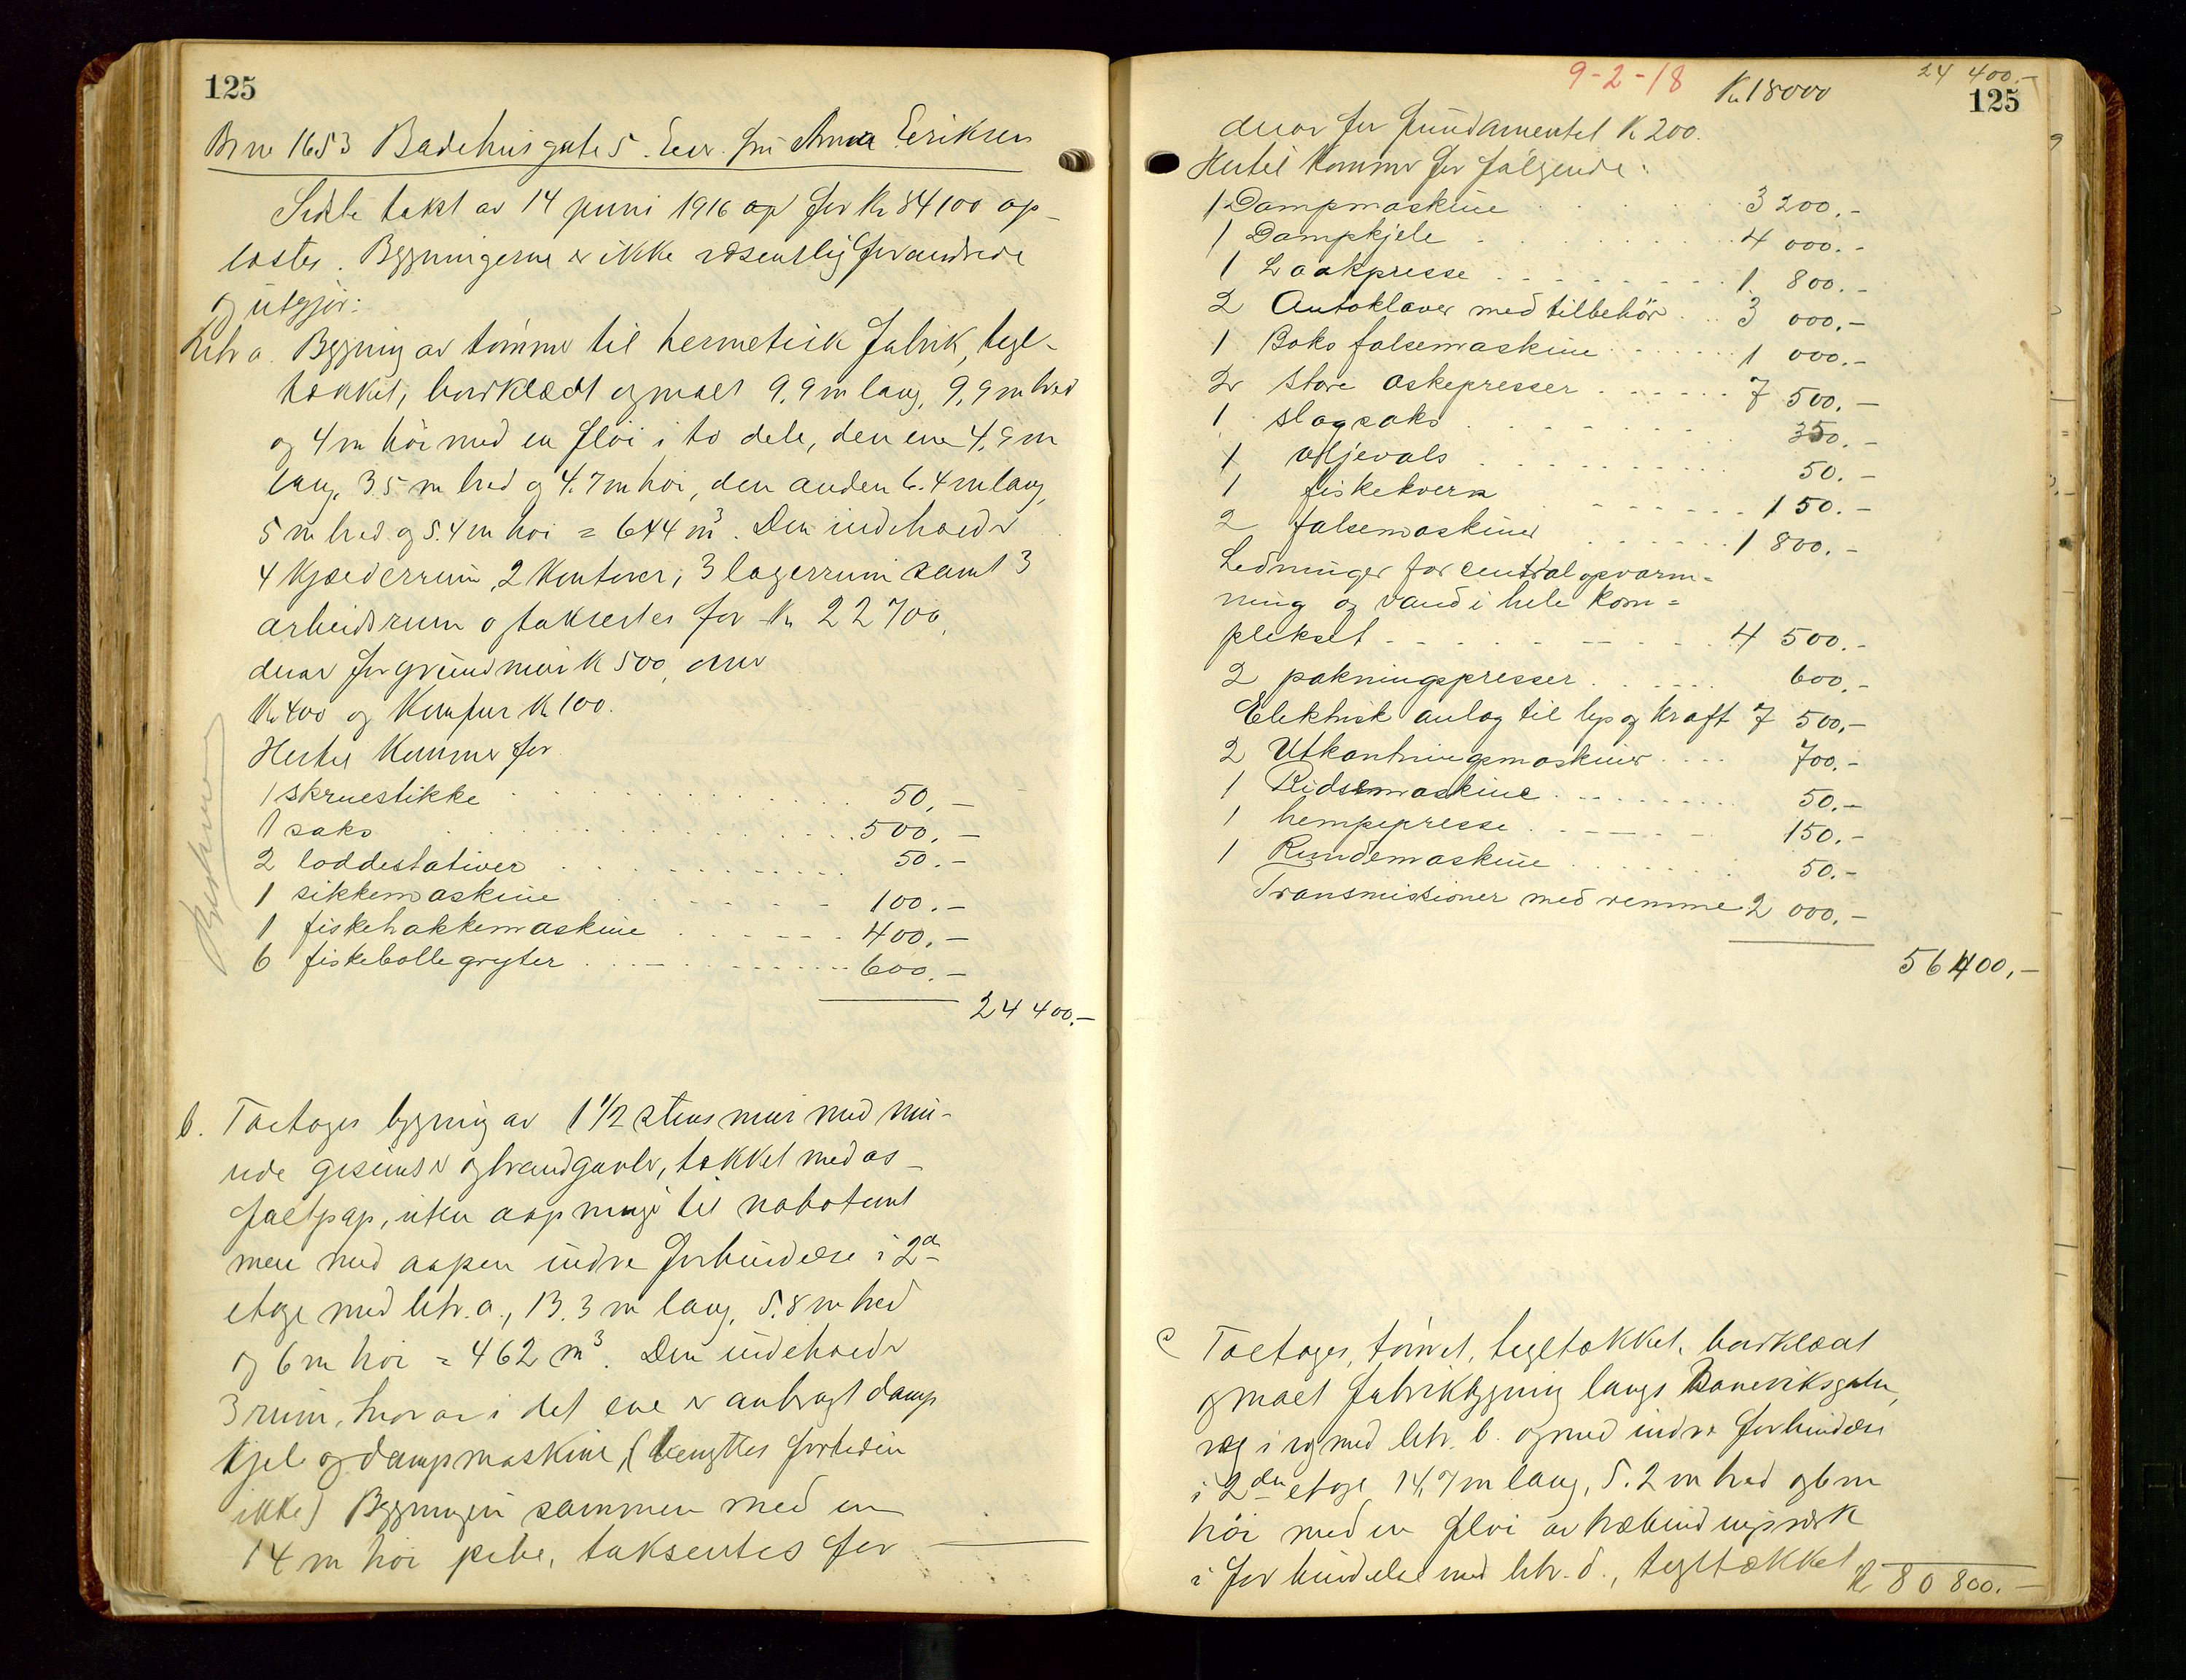 125
Br no 1653 Badehusgate 5. Eier fru Anna Eriksen
Sidste takst av 14 juni 1916 op for Kr 84100 op-
lastes. Bygningerne er ikke væsentlig forandrede
og utgjør:
Litr a. Bygning av tømmer til hermetisk fabrik, tegl-
tækket, bordklædt og malt 9,9 m lang, 9,9 m bred
og 4 m høi med en fløi i to dele, den ene 4,9 m
lang, 3.5 m bred og 4.7 m høi, den anden 6.4 m lang,
5 m bred og 5.4 m høi = 644 m³. Den indeholder
4 kjælderrum, 2 kontorer, 3 lagerrum samt 3
arbeidsrum og takseres for Kr 22700,
derav for grundmur K 500, 
Kr 400 og Komfur Kr 100.
Hertil kommer for
1 skruestikke 50.-
1 saks 500.-
2 loddestativer 50.-
1 sikkemaskine 100.-
1 fiskehakkemaskine 400.-
6 fiskebollegryter 600.-
24 400.-
b. Toetages bygning av 1 1/2 stens mur med mu-
rede gesimser og brandgavler, tækket med as-
faltpap, uten aapninger til nabotomt
men med aapen indre forbindelse i 2den
etage med litr. a., 13.3 m lang, 5.8 m bred
og 6 m høi = 462 m³. Den indeholder
3 rum, hvorav i det ene er anbragt damp
kjel og dampmaskine, (benyttes fortiden
ikke) Bygningen sammen med en
14 m høi pibe, takseres for
9-2-18 Kr 18000
24 400.-
125
derav for fundamentet K 200.
Hertil kommer for følgende:
1 Dampmaskine 3 200.-
1 Dampkjele 4 000.-
1 Laakpresse 1 800.-
2 Autoklaver med tilbehör 3 000.-
1 Boks falsemaskine 1 000.-
2 store æskepresser 7 500.-
1 slagsaks 350.-
1 oljevals 50.-
1 fiskekvern 150.-
2 falsemaskiner 1 800.-
Ledninger for centralopvarm=
ning og vand i hele kom=
plekset 4 500.-
2 pakningspresser 600.-
Elektrisk anlæg til lys og kraft 7 500.-
2 Utkantningsmaskiner 700.-
1 Ridsemaskine 50.-
1 hempepresse 150.-
1 Rundemaskine 50.-
Transmissioner med remme 2 000.-
56400.-
c Toetages, tømret, tegltækket, bordklædt
og malt fabrikbygning langs Baneviksgaten,
væg i væg med litr. b. og med indre forbindelse
i 2den etage 14,7 m lang, 5.2 m bred og 6 m
höi med en fløi av træbindingsverk
i forbindelse med litr. d., tegltækket
Kr 80 800.-